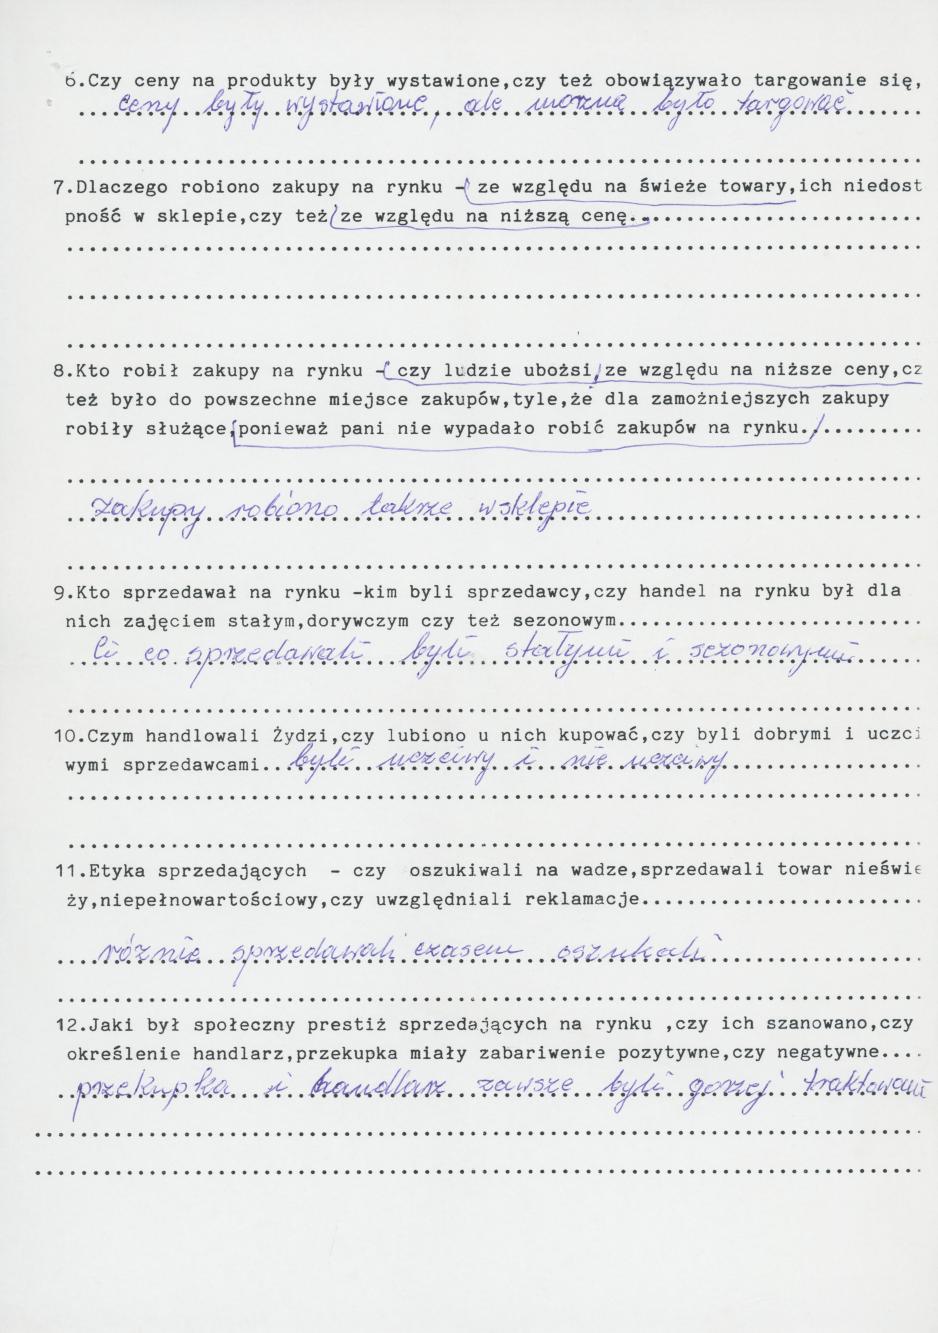 6.Czy ceny na produkty były wystawione,czy też obowiązywało targowanie się,
ceny były wystawione, ale można było targować
7.Dlaczego robiono zakupy na rynku - ze względu na świeże towary,ich niedost
pność w sklepie,czy też ze względu na niższą cenę..
8.Kto robił zakupy na rynku - czy ludzie ubożsi ze względu na niższe ceny,cz
też było do powszechne miejsce zakupów,tyle,że dla zamożniejszych zakupy
robiły służące,ponieważ pani nie wypadało robić zakupów na rynku.
zakupy robiono takrze w sklepie
9.Kto sprzedawał na rynku -kim byli sprzedawcy,czy handel na rynku był dla
nich zajęciem stałym,dorywczym czy też sezonowym
Ci co sprzedawali byli stałymi i sezonowymi
10.Czym handlowali Żydzi,czy lubiono u nich kupować,czy byli dobrymi i uczci
wymi sprzedawcami... byli uczciwy i nie uczciwy
11.Etyka sprzedających - czy oszukiwali na wadze,sprzedawali towar nieświe
ży,niepełnowartościowy,czy uwzględniali reklamacje
różnie sprzedawali czasem oszukali
12.Jaki był społeczny prestiż sprzedających na rynku ,czy ich szanowano,czy
określenie handlarz,przekupka miały zabariwenie pozytywne,czy negatywne....
przekupka i handlarz zawsze byli gorzej traktowani